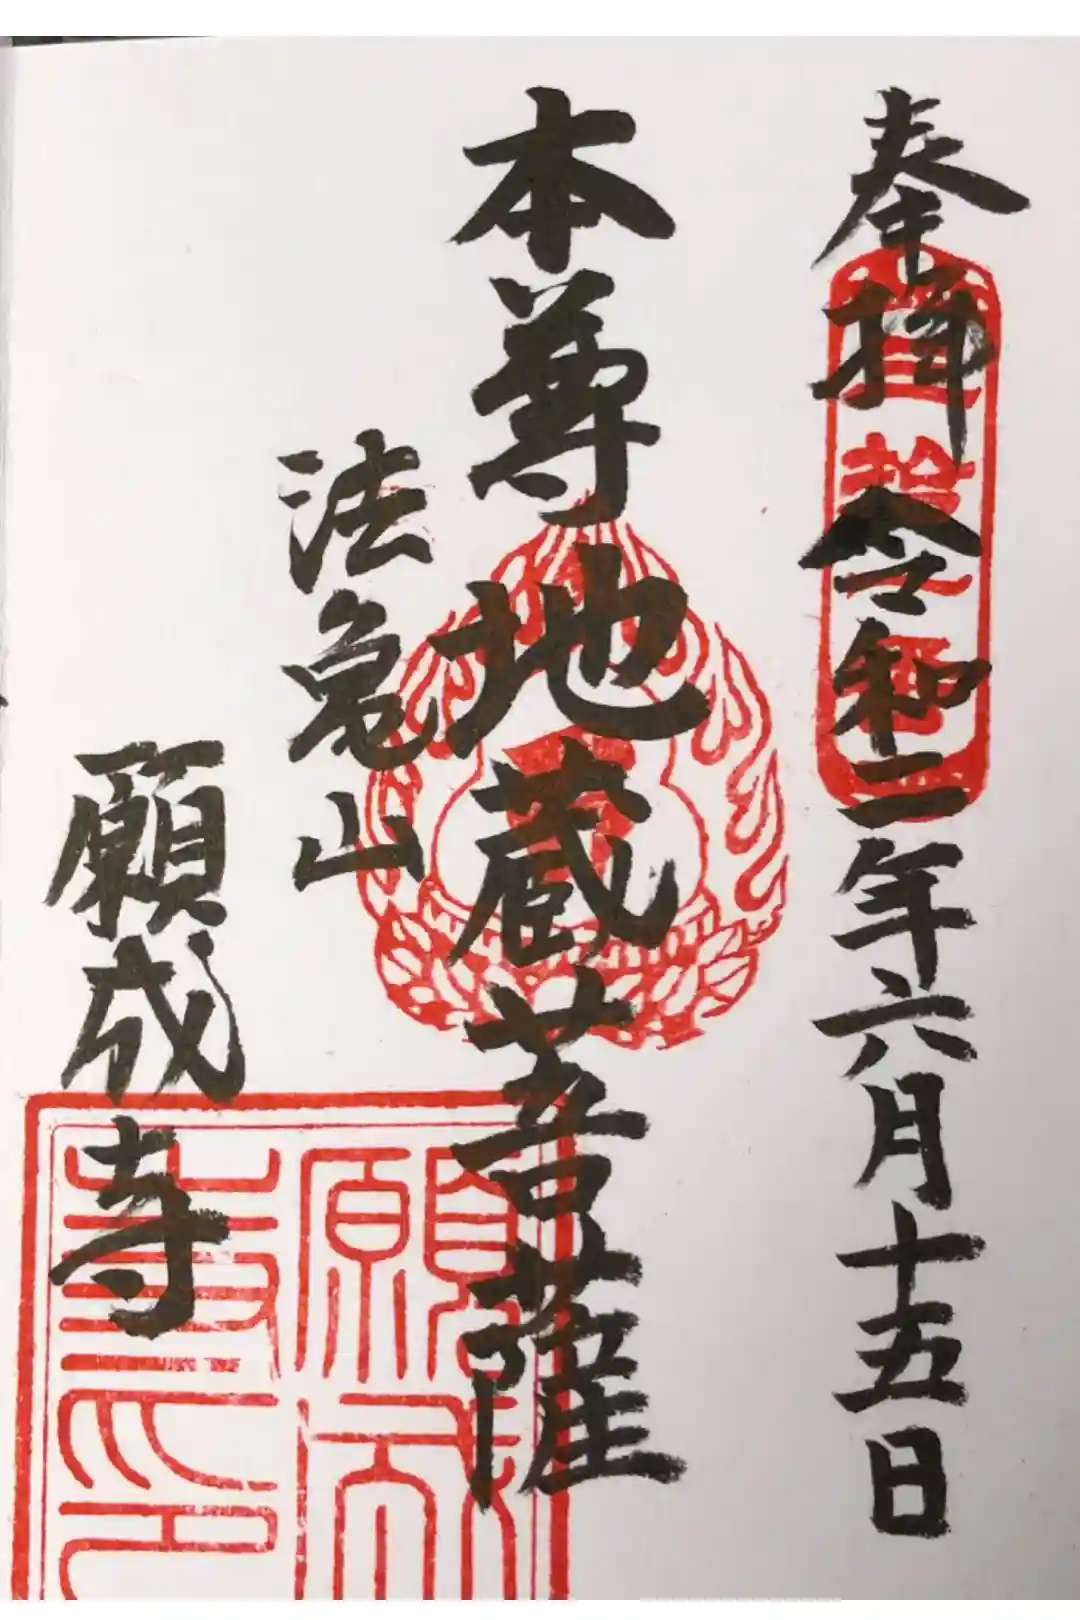 奉拝 令和二年六月十五日
本尊地蔵菩薩
法亀山
願成寺
願成
寺印